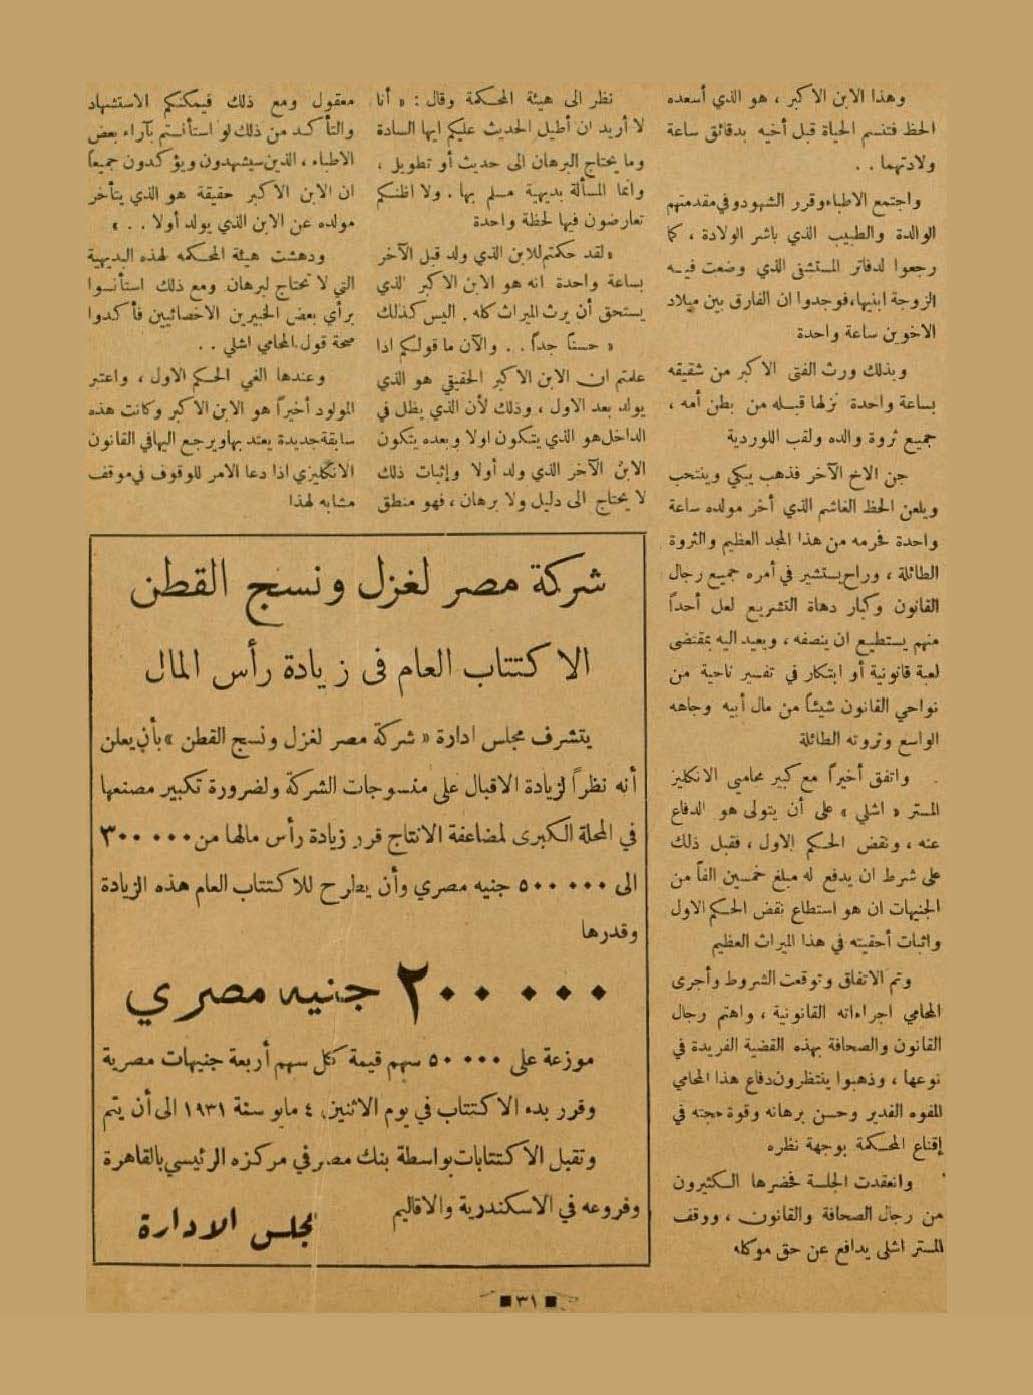 وهذا الابن الاكبر ، هو الذي أسعده
الحظ فتنسم الحياة قبل أخيه بدقائق ساعة
ولادتهما . .
واجتمع الاطباء وقرر الشهود وفي مقدمتهم
الوالدة والطبيب الذي باشر الولادة ، كما
رجعوا لدفاتر المستشفى الذي وضعت فيه
الزوجة ابنيها ، فوجدوا ان الفارق بين ميلاد
الاخوين ساعة واحدة
وبذلك ورث الفتى الاكبر من شقيقه
بساعة واحدة نزلها قبله من بطن أمه ،
جميع ثروة والده ولقب اللوردية
جن الاخ الآخر فذهب يبكي وينتحب
ويلعن الحظ الغاشم الذي أخر مولده ساعة
واحدة فحرمه من هذا المجد العظيم والثروة
الطائلة ، وراح يستشير في أمره جميع رجال
القانون وكبار دهاة التشريع لعل أحداً
منهم يستطيع ان ينصفه ، ويعيد اليه بمقتضى
لعبة قانونية أو ابتكار في تفسير ناحية من
نواحي القانون شيئاً من مال أبيه وجاهه
الواسع وثروته الطائلة
واتفق أخيراً مع كبير محامي الانكليز
المستر « اشلي » على أن يتولى هو الدفاع
عنه ، ونقض الحكم الاول ، فقبل ذلك
على شرط ان يدفع له مبلغ خمسين الفاً من
الجنيهات ان هو استطاع نقض الحكم الاول
واثبات أحقيته في هذا الميراث العظيم
وتم الاتفاق وتوقعت الشروط وأجرى
المحامي اجراءاته القانونية ، واهتم رجال
القانون والصحافة بهذه القضية الفريدة في
نوعها ، وذهبوا ينتظرون دفاع هذا المحامي
المفوه القدير وحسن برهانه وقوة حجته في
إقناع المحكمة بوجهة نظره
وانعقدت الجلسة فحضرها الكثيرون
من رجال الصحافة والقانون ، ووقف
المستر اشلى يدافع عن حق موكله
نظر الى هيئة المحكمة وقال : « أنا
لا أريد ان أطيل الحديث عليكم ايها السادة
وما يحتاج البرهان الى حديث أو تطويل ،
وانما المسألة بديهية مسلم بها . ولا اظنكم
تعارضون فيها لحظة واحدة
« لقد حكمتم للابن الذي ولد قبل الآخر
بساعة واحدة انه هو الابن الاكبر الذي
يستحق أن يرث الميراث كله . اليس كذلك
« حسناً جداً . . والآن ما قولكم اذا
علمتم ان الابن الاكبر الحقيقي هو الذي
يولد بعد الاول ، وذلك لأن الذي يظل في
الداخل هو الذي يتكون اولا وبعده يتكون
الابن الآخر الذي ولد أولا وإثبات ذلك
لا يحتاج الى دليل ولا برهان ، فهو منطق
معقول ومع ذلك فيمكنكم الاستشهاد
والتأكد من ذلك لو استأنستم بآراء بعض
الاطباء ، الذين سيشهدون ويؤكدون جميعاً
ان الابن الاكبر حقيقة هو الذي يتأخر
مولده عن الابن الذي يولد أولا . . »
ودهشت هيئة المحكمه لهذه البديهية
التي لا تحتاج لبرهان ومع ذلك استأنسوا
برأي بعض الخبيرين الاخصائيين فأكدوا
صحة قول المحامي اشلي . .
وعندها الغي الحكم الاول ، واعتبر
المولود أخيراً هو الابن الاكبر وكانت هذه
سابقة جديدة يعتد بها ويرجع اليها في القانون
الانكليزي اذا دعا الامر للوقوف في موقف
مشابه لهذا
شركة مصر لغزل ونسج القطن
الاكتتاب العام فى زيادة رأس المال
يتشرف مجلس ادارة « شركة مصر لغزل ونسج القطن » بأن يعلن
أنه نظراً لزيادة الاقبال على منسوجات الشركة ولضرورة تكبير مصنعها
في المحلة الكبرى لمضاعفة الانتاج قرر زيادة رأس مالها من ٣٠٠ ٠٠٠
الى ٥٠٠ ٠٠٠ جنيه مصري وأن يطرح للاكتتاب العام هذه الزيادة
وقدرها
٢٠٠ ٠٠٠ جنيه مصري
موزعة على ٥٠ ٠٠٠ سهم قيمة كل سهم أربعة جنيهات مصرية
وقرر بدء الاكتتاب في يوم الاثنين ٤ مايو سنة ١٩٣١ الى أن يتم
وتقبل الاكتتابات بواسطة بنك مصر في مركزه الرئيسي بالقاهرة
وفروعه في الاسكندرية والاقاليم
مجلس الادارة
■ ٣١ ■